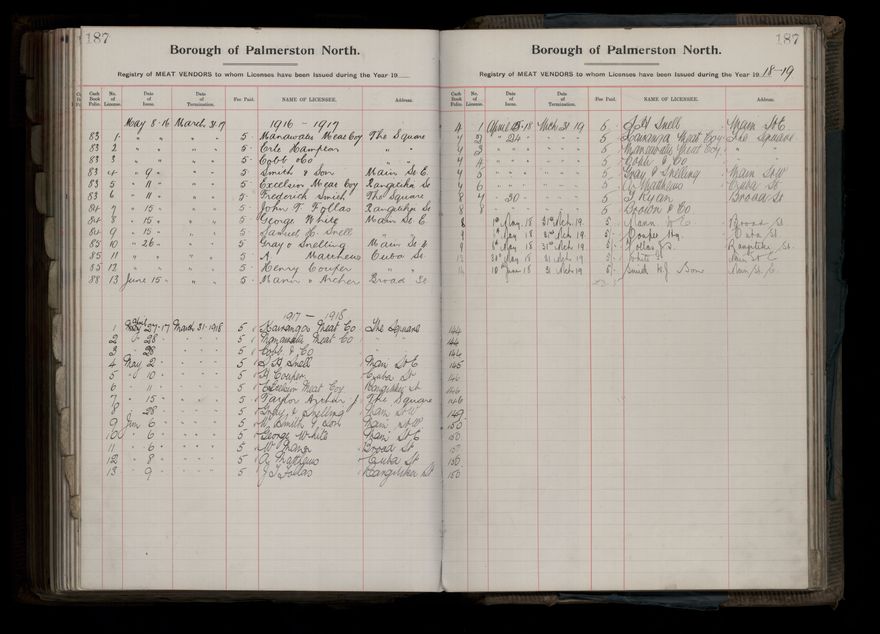 187
Borough of Palmerston North.
Registry of MEAT VENDORS to whom Licenses have been Issued during the Year 19
Cash Book Folio. No. of License. Date of Issue. Date of Termination. Fee Paid. NAME OF LICENSEE. Address.
May 8-16 March 31-17 1916 - 1917
83 1 " " " " 5 Manawatu Meat Coy The Square
83 2 " " " " 5 " "
83 3 " " " " 5 Cobb & Co " "
83 4 " 9 " " 5 Smith & Son Main St E.
83 5 " 11 " " 5 Excelsior Meat Coy Rangitikei St
83 6 " 11 " " 5 Frederick Smith The Square
84 7 " 15 " " 5 John T. Follas Rangitikei St
84 8 " 15 " " 5 George White Main St E.
84 9 " 15 " " 5 Samuel H. Snell " "
85 10 " 26 " " 5 Gray & Snelling Main St
85 11 " " " " 5 A Matthews Cuba St
85 12 " " " " 5 Henry Couper " "
88 13 June 15 " " 5 Mann & Archer Broad St
1917 - 1918
1 27-17 March 31-1918 5 Kairanga Meat Co The Square
2 " 28 " " " 5 Manawatu Meat Co "
3 28 " " " 5 Cobb & Co "
4 May 2 " " " 5 S H Snell Main St E
5 " 10 " " " 5 H Couper Cuba St
6 " 11 " " " 5 Excelsior Meat Coy Rangitikei St
7 " 15 " " " 5 Taylor Archer The Square
8 " 28 " " " 5 Gray & Snelling Main St W
9 Jun 6 " " " 5 W. Smith & Son Main St W
10 " 6 " " " 5 George White Main St E
11 " 6 " " " 5 W Mann Broad St
12 " 8 " " " 5 A Matthews Cuba St
13 " 9 " " " 5 J T Follas Rangitikei St
187
Borough of Palmerston North.
Registry of MEAT VENDORS to whom Licenses have been Issued during the Year 19 18-19
Cash Book Folio. No. of License. Date of Issue. Date of Termination. Fee Paid. NAME OF LICENSEE. Address.
4 1 April 23-18 Mch 31 19 5 S H Snell Main St E.
4 2 " 24 " " " 5 Kairanga Meat Coy The Square
4 3 " " " " " 5 Manawatu Meat Coy "
4 4 " " " " " 5 Cobb & Co "
4 5 " " " " " 5 Gray & Snelling Main St W
4 6 " " " " " 5 A Matthews Cuba St
8 7 " 30 " " " 5 T Ryan Broad St
8 8 " " " " " 5 Brown & Co
8 1st May 18 31st Mch 19 5 Mann Broad St.
9 1st May 18 31st Mch 19 5 Couper Hy. Cuba St.
9 1st May 18 31st Mch 19 5 Follas J.T. Rangitikei St.
13 31st May 18 31 Mch 19 5 White G Main St E
14 10th June 18 31 Mch 19 5 Smith W J Son Main St. E.
144
144
144
145
146
146
146
149
150
150
150
150
150